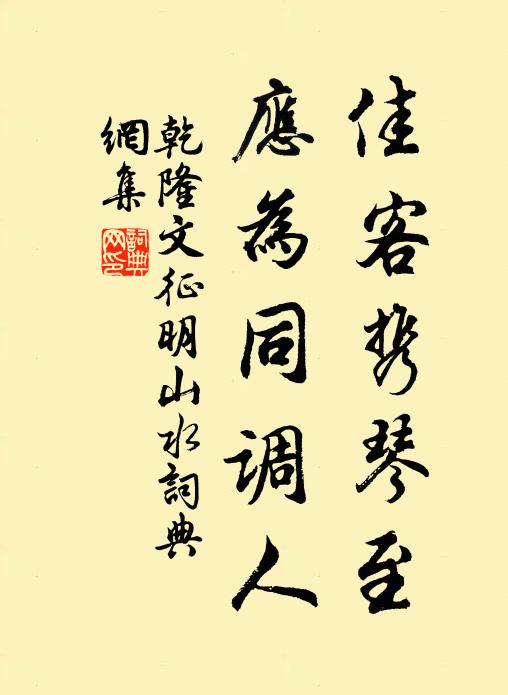 佳客携琴至
應為同调人
乾隆文征明山水詞典
網集
詞典網印